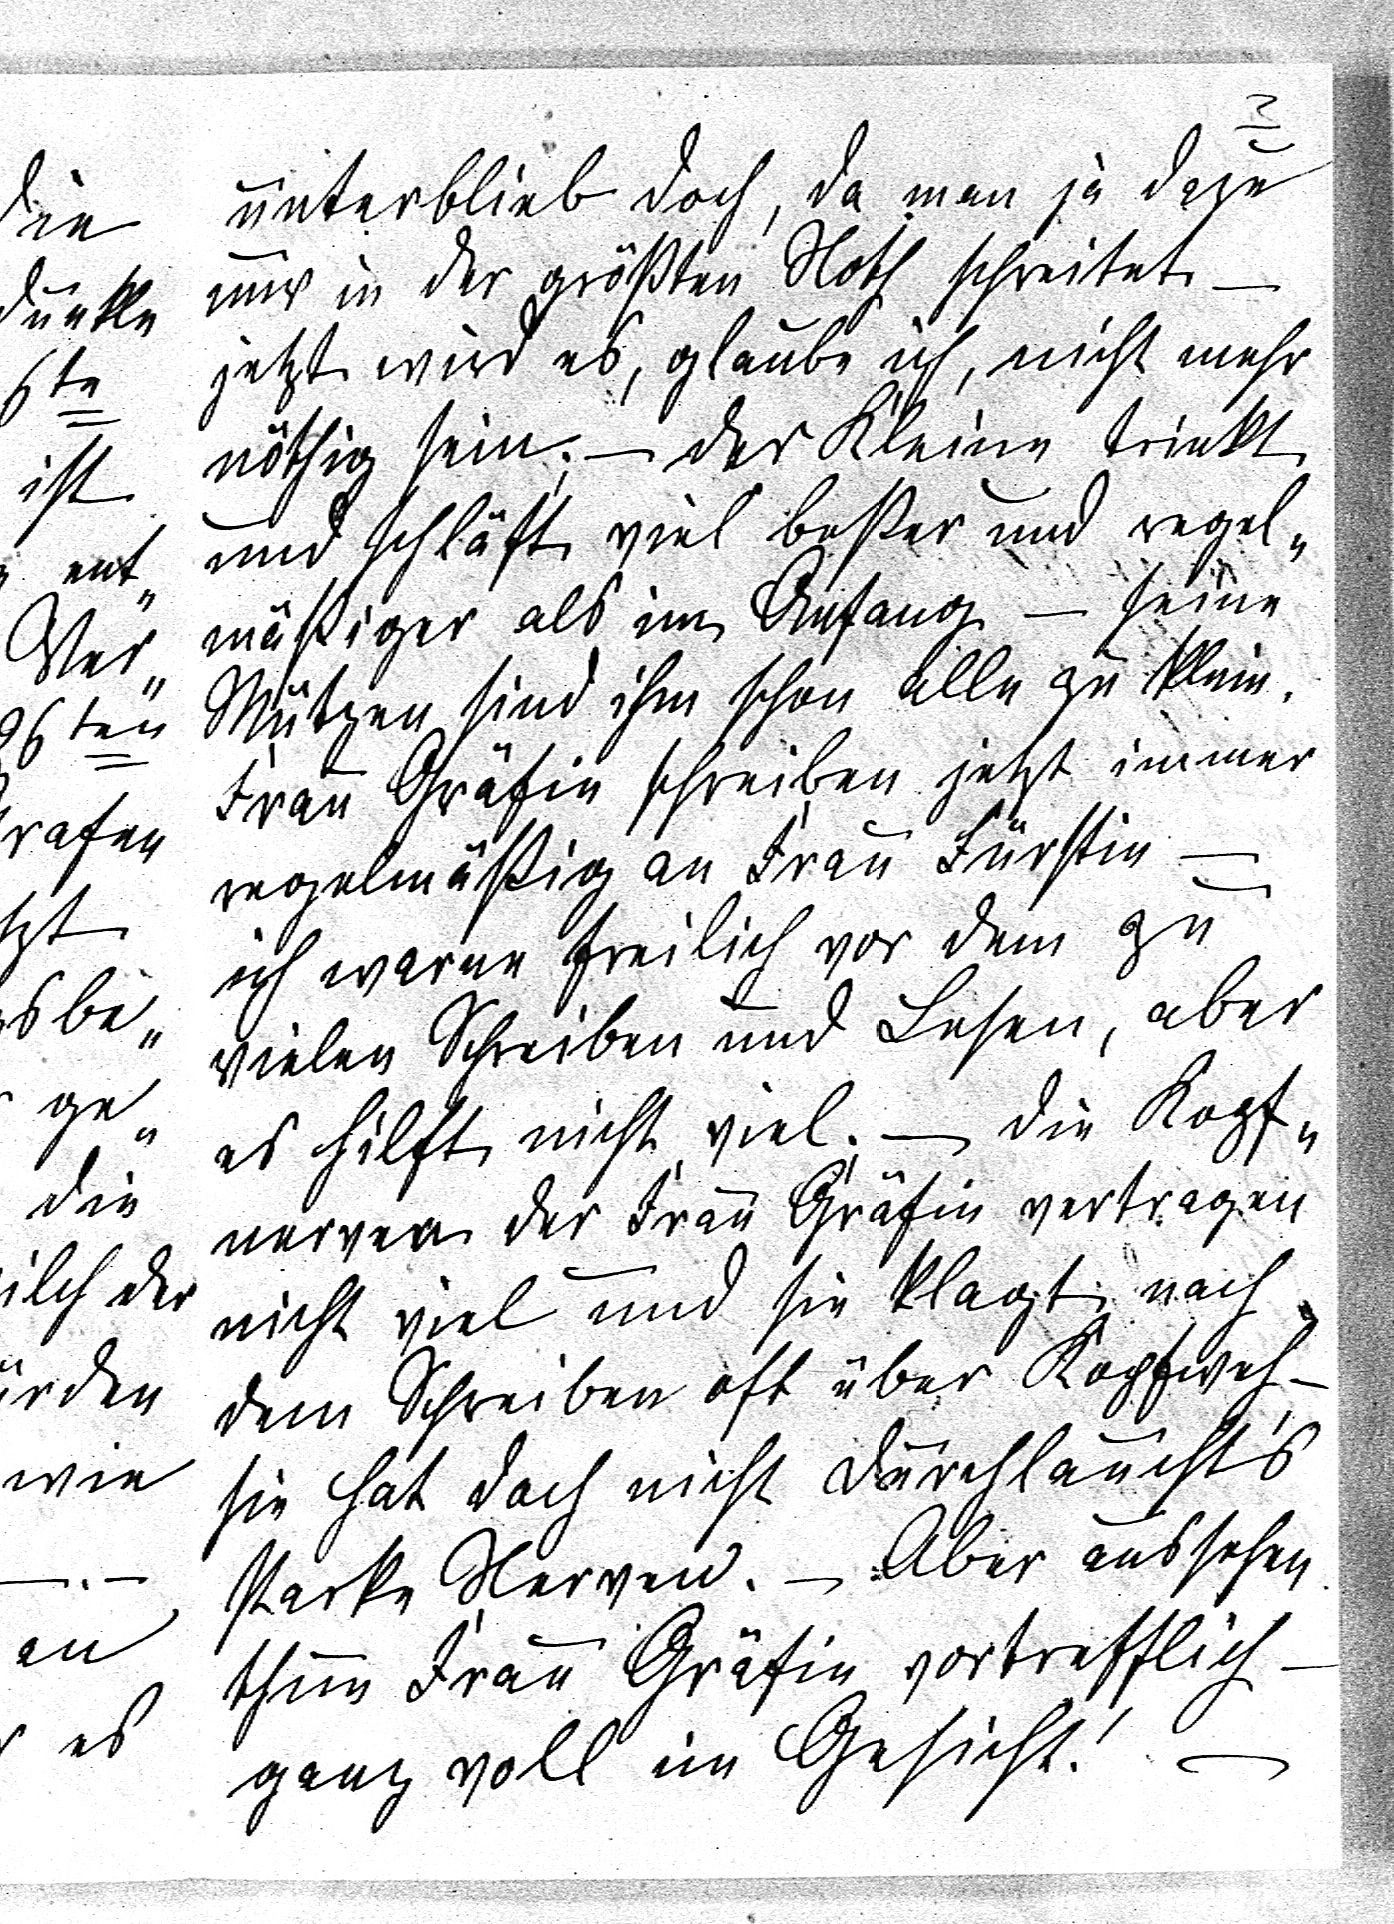 3
unterblieb doch, da man ja dazu
nur in der größten Noth schreitet —
jetzt wird es, glaube ich, nicht mehr
nöthig sein; — der Kleine trinkt
und schläft viel beßer und regel„
mäßiger als im Anfang — seine
Mützen sind ihm schon alle zu klein.
Frau Gräfin schreiben jetzt immer
regelmäßig an Frau Fürstin —
ich warne freilich vor dem zu
vielen Schreiben und Lesen, aber
es hilft nicht viel. — die Kopf„
nerven der Frau Gräfin vertragen
nicht viel und sie klagt nach
dem Schreiben oft über Kopfweh —
sie hat doch nicht Durchlaucht's
starke Nerven. — Aber aussehen
thun Frau Gräfin vortrefflich —
ganz voll im Gesicht! —
die
dunkle
ste
ist
ent„
Ver„
sten
rafen
tzt
sbe„
ge„
die
ilch der
ürden
wie
— . —
an
es